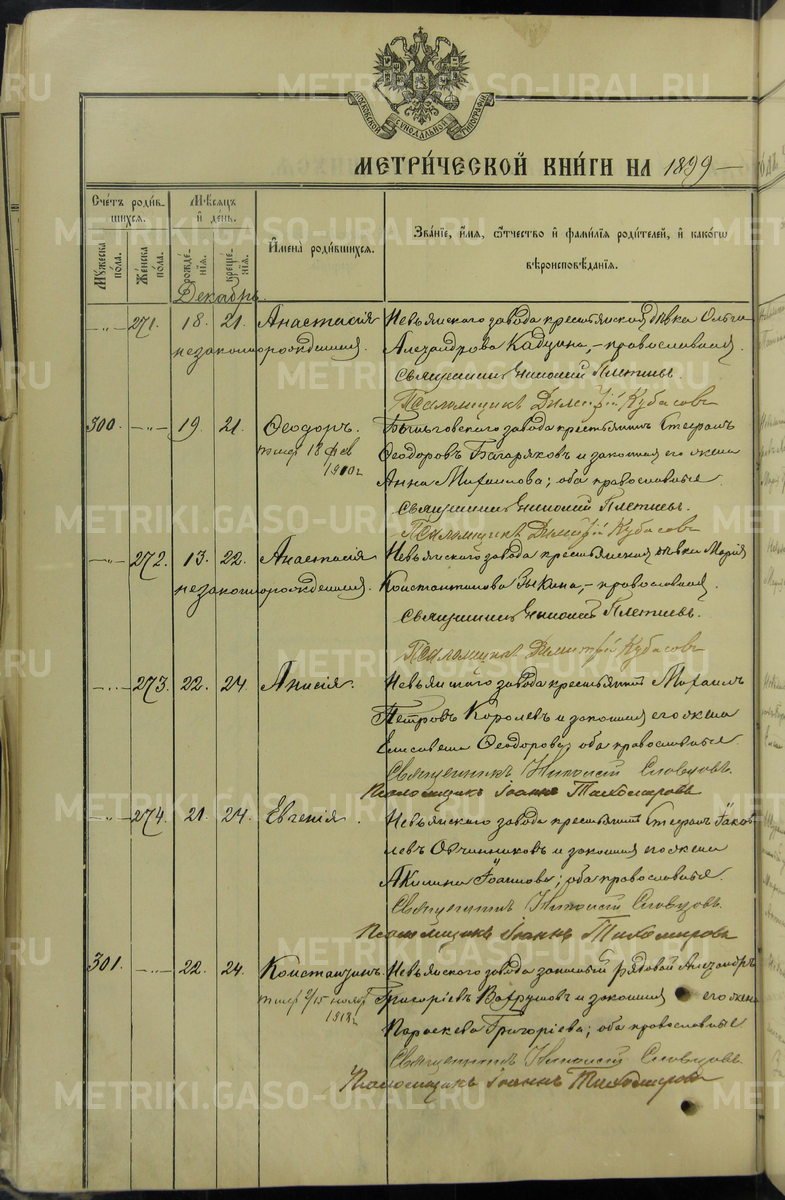 МЕТРИ́ЧЕСКОЙ КНИ́ГИ НА 1899
Сче́тъ роди́в-
шихся.
Мѣсяцъ
и҆ день.
Му́жеска по́ла.
Же́нска по́ла.
рожде́нїя.
креще́нїя.
И҆мена̀ роди́вшихся.
Зва́нїе, и҆́мя, ѻ҆́тчество и҆ фами́лїя роди́телей, и҆ како́гѡ
вѣроисповѣ́данїя.
Декабрь
271. 18. 21. Анастасія Невьянскаго завода крестьянская дѣвка Ольга
незаконнорожденная. Александрова Кадцина, - православная.
Священникъ Николай Плотневъ.
Псаломщикъ Димитрій Кубасовъ
300. 19. 21. Ѳеодоръ. Быньговскаго завода крестьянинъ Стефанъ
18 фев Ѳеодоровъ Багаряковъ и законная его жена
1910г Анна Михаилова; оба православные.
Священникъ Николай Плотневъ.
Псаломщикъ Димитрій Кубасовъ
272. 13. 22. Анастасія Невьянскаго завода крестьянская дѣвка Марія
незаконнорожденная. Константинова Зыкина, - православная.
Священникъ Николай Плотневъ.
Псаломщикъ Димитрій Кубасовъ
273. 22. 24. Анисія. Невьянскаго завода крестьянинъ Михаилъ
Петровъ Королевъ и законная его жена
Елисавета Ѳеодорова; оба православные.
Священникъ Николай Словцовъ.
Псаломщикъ Іоаннъ Тихомировъ
274. 21. 24. Евгенія. Невьянскаго завода крестьянинъ Стефанъ Іаков
левъ Овчинниковъ и законная его жена
Акилина Іоаннова; оба православные.
Священникъ Николай Словцовъ.
Псаломщикъ Іоаннъ Тихомировъ
301. 22. 24. Константинъ. Невьянскаго завода запасный рядовой Александръ
2/15 нояб Григоріевъ Вахрушовъ и законная его жена
1918г Параскева Григоріева; оба православные
Священникъ Николай Словцовъ.
Псаломщикъ Іоаннъ Тихомировъ
METRIKI.GASO-URAL.RU